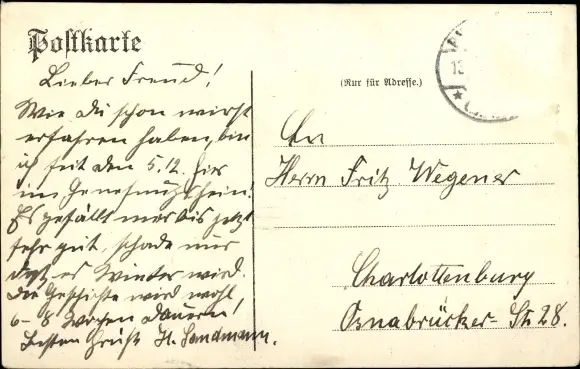 Postkarte
(Nur für Adresse.)
Lieber Freund!
Wie du schon wirst
erfahren haben, bin
ich seit den 5.12. hier
im Genesungsheim.
Es gefällt mir bis jetzt
sehr gut, schade nur
daß es Winter wird.
Die Geschichte wird wohl
6-8 Wochen dauern!
Besten Gruß H. Sandmann.
An
Herrn Fritz Wegener
Charlottenburg
Osnabrücker-Str 28.